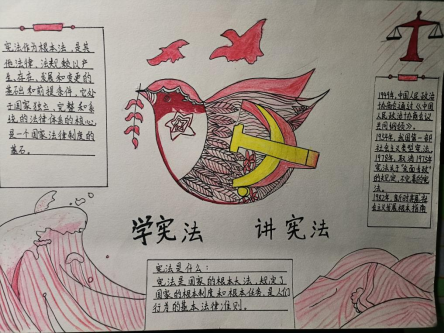 宪法作为根本法，是其
他法律、法规赖以产
生、存在、发展和变更的
基础和前提条件，它处
于国家独立、完整和系
统的法律体系的核心，
是一个国家法律制度的
基石。
学宪法 讲宪法
宪法是什么：
宪法是国家的根本大法，规定了
国家的根本制度和根本任务，是人们
行为的基本法律准则。
1949年，中国人民政治
协商会议通过《中国
人民政治协商会议
共同纲领》。
1954年，我国第一部
社会主义类型宪法。
1978年，取消1975年
宪法关于"全面专政"
的规定，不完善的宪
法。